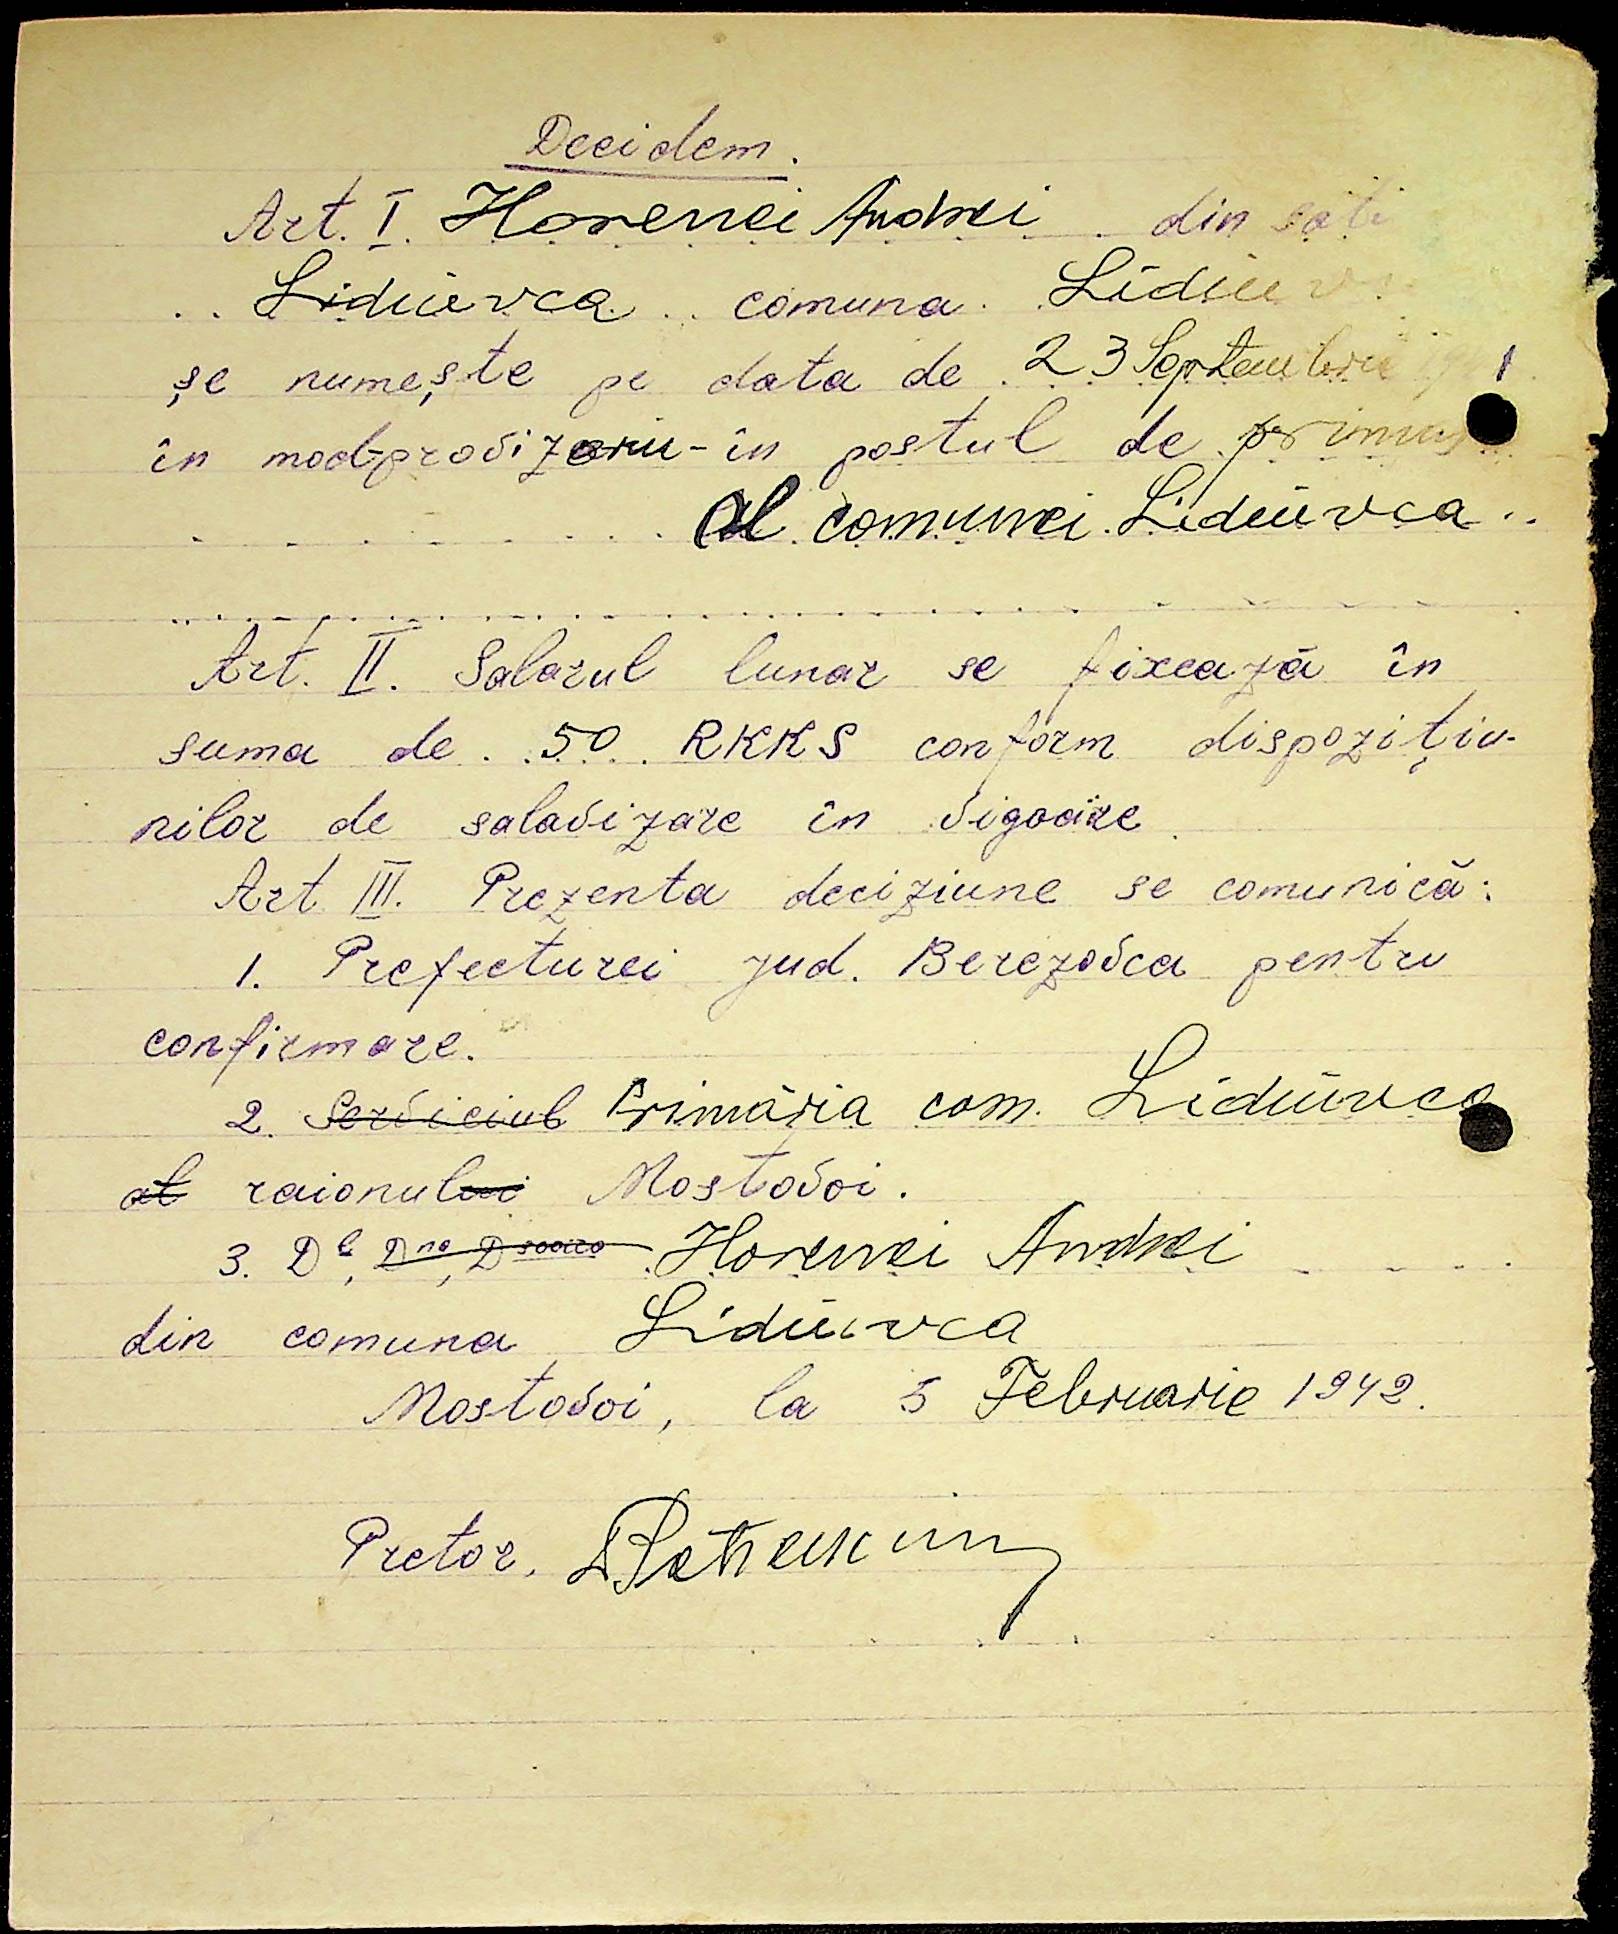 Decidem.
Art. I. Horenei Andrei din satu
Lidiievca comuna Lidiiev
se numește pe data de 23 Septembrie 1
în mod provizoriu - în postul de primar
al comunei Lidiievca
Art. II. Salarul lunar se fixează în
suma de 50 RKKS conform dispoziţiu-
nilor de salavizare în vigoare
Art III. Prezenta deciziune se comunică:
1. Prefecturei jud. Berezovca pentru
confirmare.
2. Serviciul Primăria com. Lidiievca
al raionului Mostovoi.
3. Dl, Dna, Dșoara Horenei Andrei
din comuna Lidiievca
Mostovoi, la 5 Februarie 1942.
Pretor,